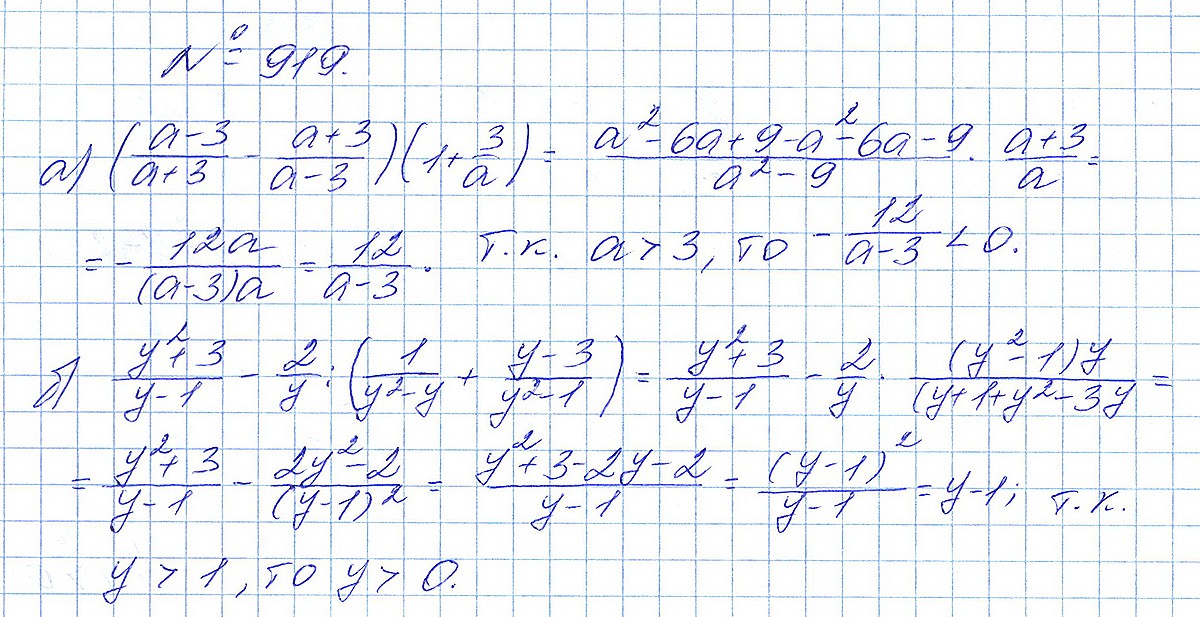 № 919.
а) ((a-3)/(a+3) - (a+3)/(a-3))(1+3/a) = (a²-6a+9-a²-6a-9)/(a²-9) · (a+3)/a =
= - 12a/((a-3)a) = 12/(a-3). т.к. a>3, то - 12/(a-3) < 0.
б) (y²+3)/(y-1) - 2/y : (1/(y²-y) + (y-3)/(y²-1)) = (y²+3)/(y-1) - 2/y · ((y²-1)y)/((y+1+y²-3y) =
= (y²+3)/(y-1) - (2y²-2)/(y-1)² = (y²+3-2y-2)/(y-1) = (y-1)²/(y-1) = y-1; т.к.
y > 1, то y > 0.